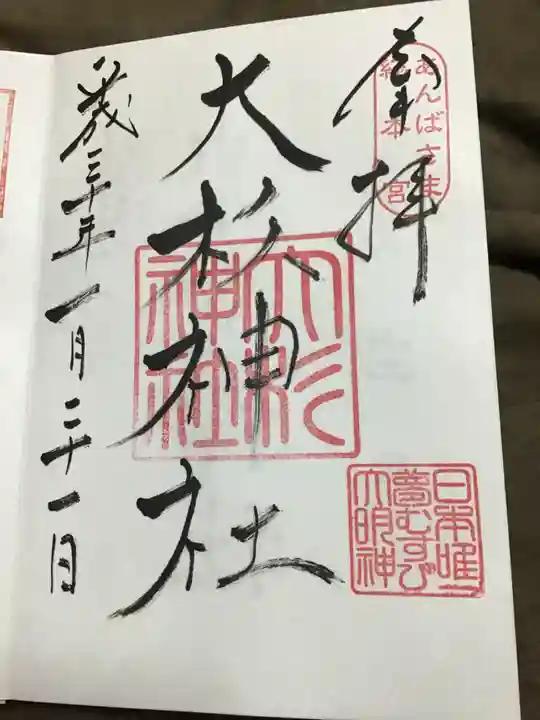 奉拝
あんばさま
総本宮
大杉神社
大杉
神社
日本唯一
夢むすび
大明神
平成三十年一月二十一日